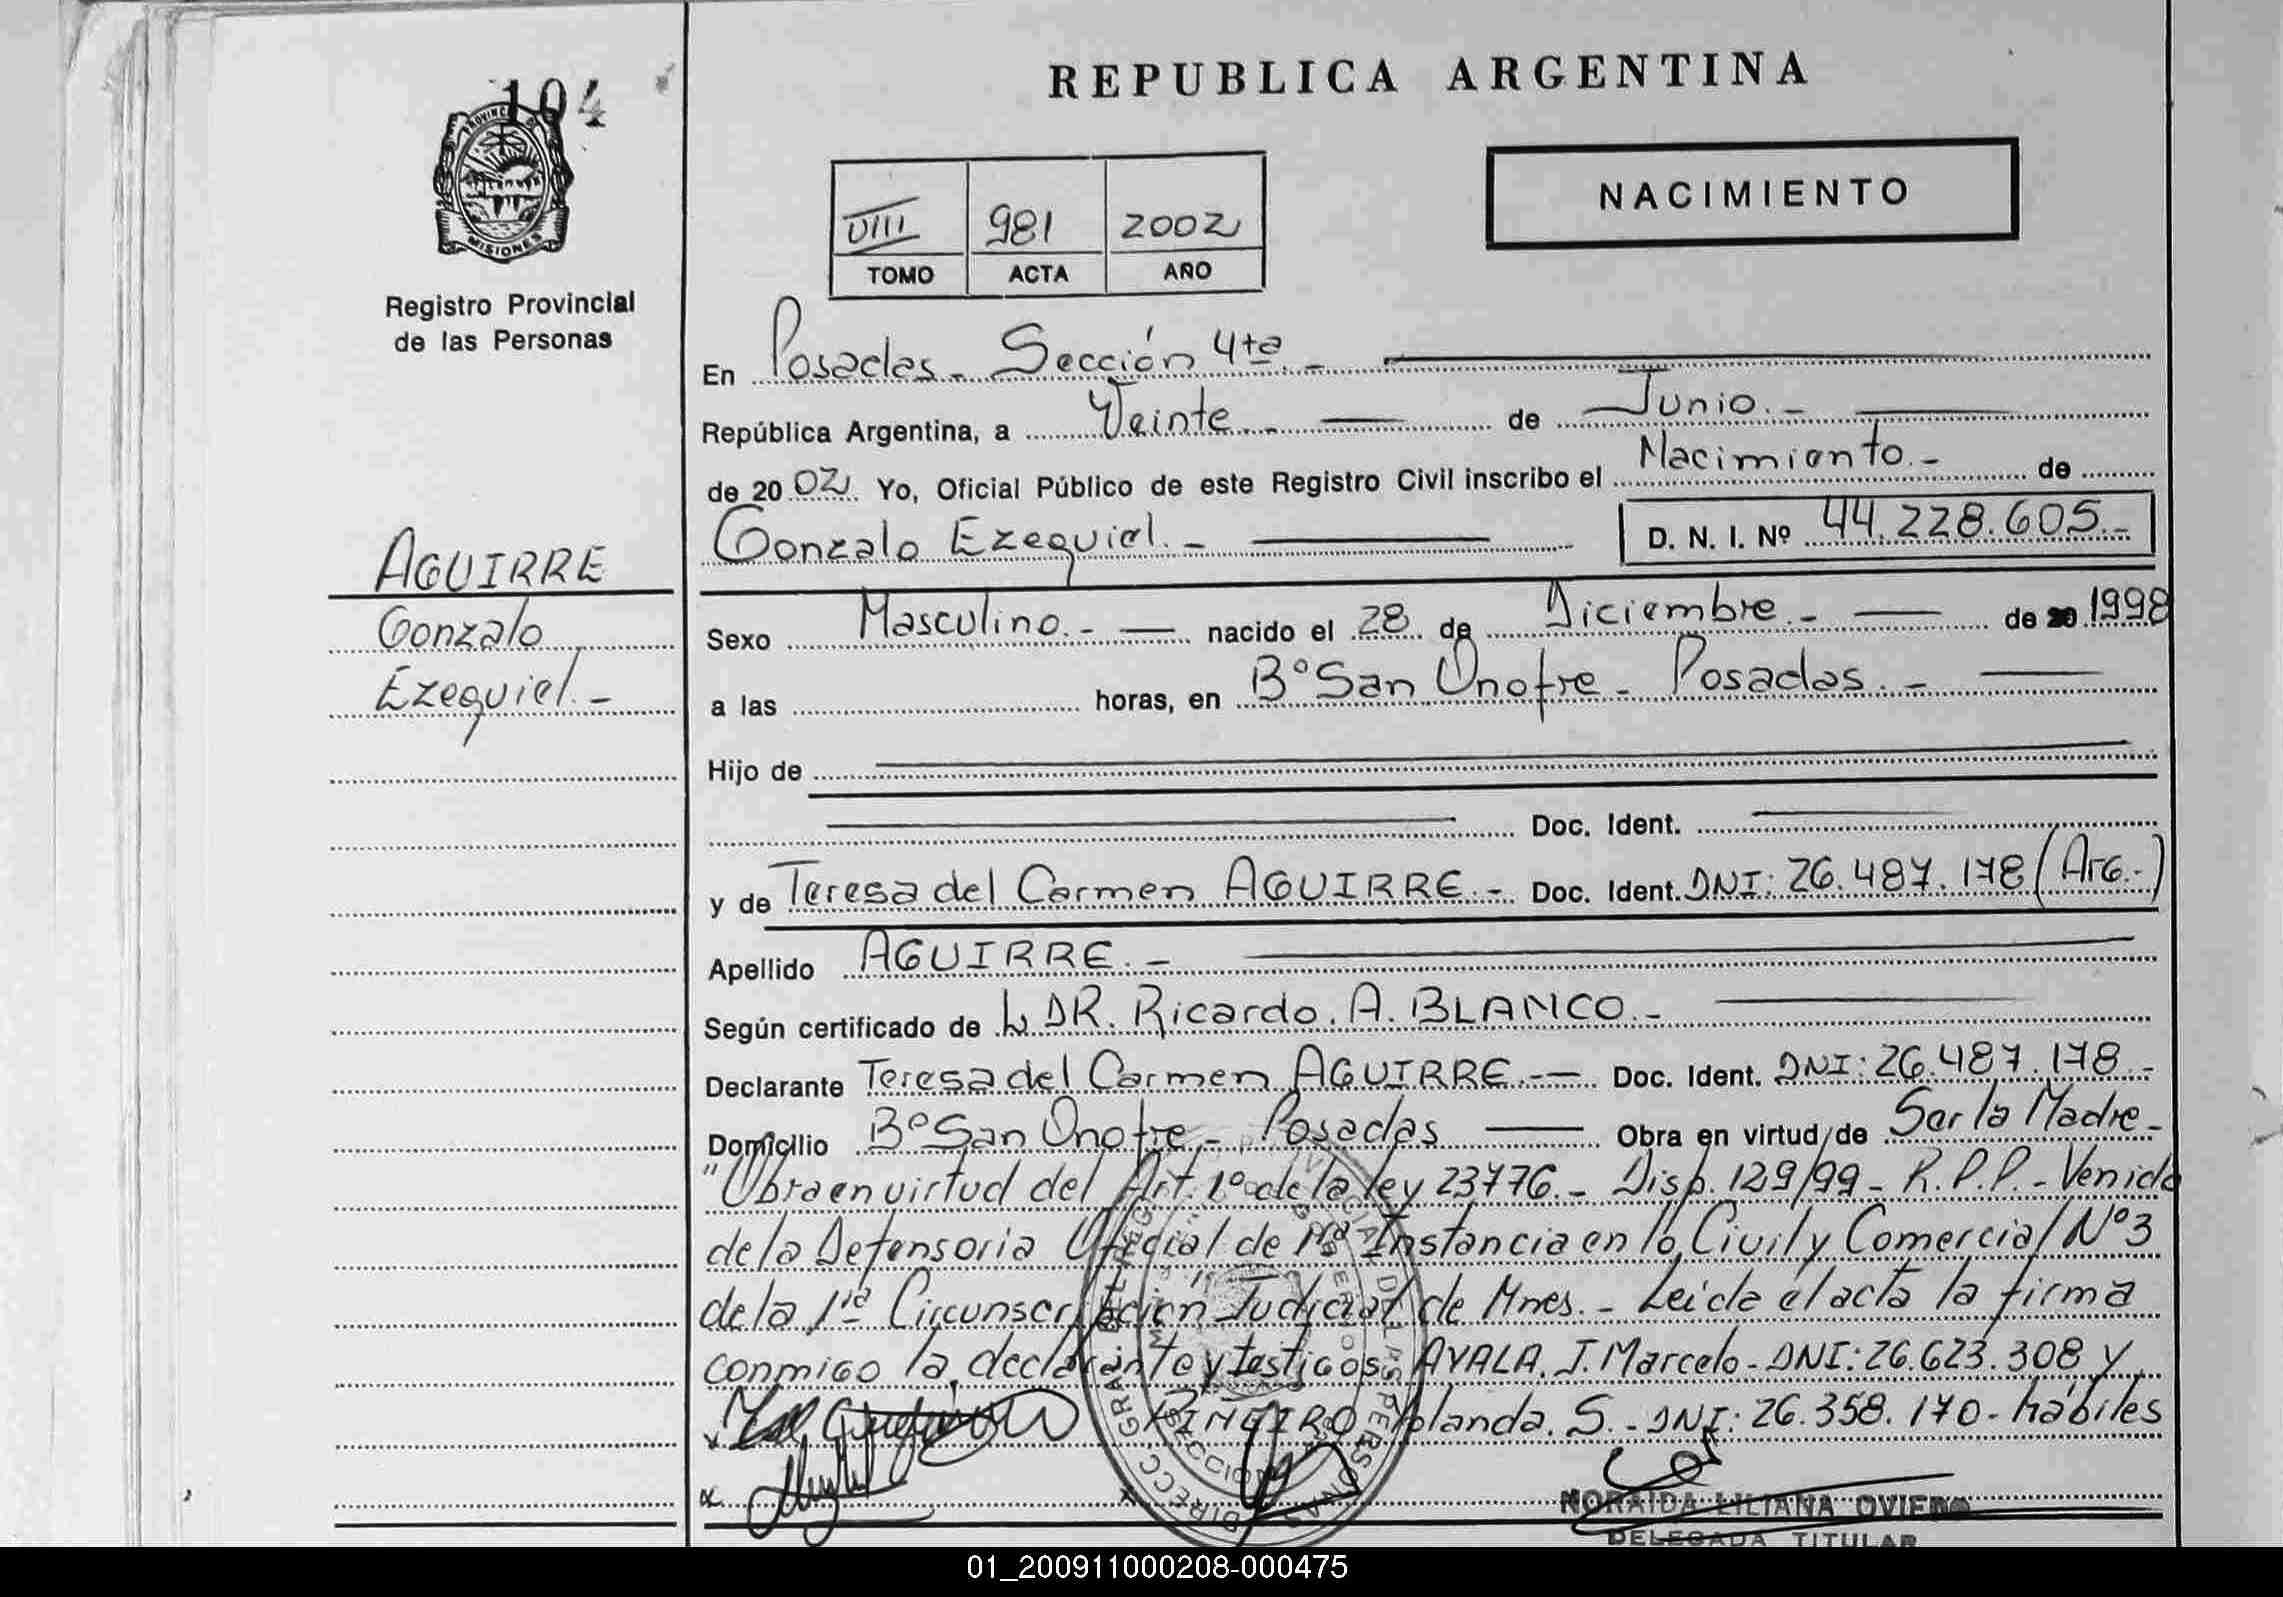 104
PROVINCIA DE
MISIONES
Registro Provincial
de las Personas
AGUIRRE
Gonzalo
Ezequiel.-
REPUBLICA ARGENTINA
NACIMIENTO
VIII 981 2002
TOMO ACTA AÑO
En Posadas- Sección 4ta.-
República Argentina, a Veinte.- de Junio.-
de 2002. Yo, Oficial Público de este Registro Civil inscribo el Nacimiento.- de
Gonzalo Ezequiel.- D. N. I. Nº 44.228.605.-
Sexo Masculino.- nacido el 28 de Diciembre.- de 20 1998
a las horas, en Bº San Onofre- Posadas.-
Hijo de
Doc. Ident.
y de Teresa del Carmen AGUIRRE.- Doc. Ident. DNI: 26.487.178 (Arg.-)
Apellido AGUIRRE.-
Según certificado de DR. Ricardo. A. BLANCO.-
Declarante Teresa del Carmen AGUIRRE.- Doc. Ident. DNI: 26.487.178.-
Domicilio Bº San Onofre- Posadas Obra en virtud de Ser la Madre-
"Obra en virtud del Art. 1º de la ley 23776.- Disp. 129/99- R.P.P.- Venida
de la Defensoria Oficial de 1ra Instancia en lo Civil y Comercial Nº 3
de la 1ra Circunscripción Judicial de Mnes.- Leida el acta la firma
conmigo la declarante y testigos: AYALA. J. Marcelo- DNI: 26.623.308 y
PIÑEIRO, Yolanda. S.- DNI: 26.358.170- hábiles
NORAIDA LILIANA OVIEDO
DELEGADA TITULAR
01_200911000208-000475